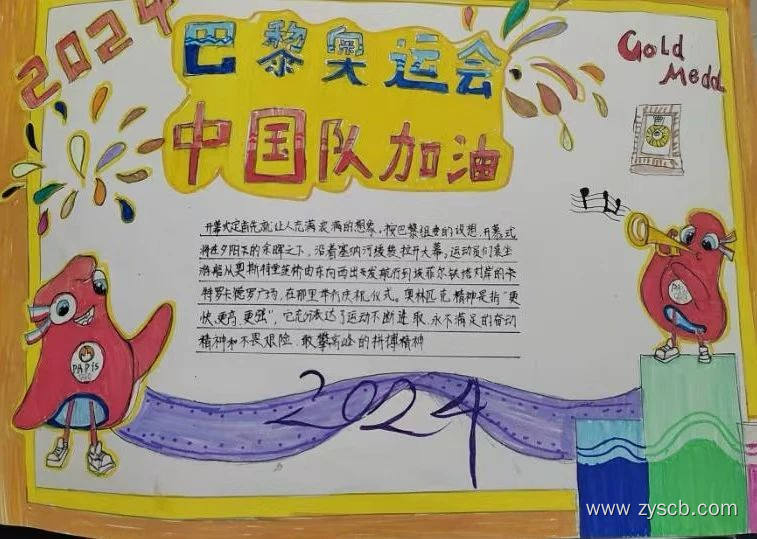 2024
巴黎奥运会
中国队加油
Gold
Medd
开幕式定会先就让人充满浪漫的想象。按巴黎组委的设想,开幕式
将在夕阳下的余晖之下,沿着塞纳河缓缓拉开大幕。运动员们乘坐
游船从奥斯特里茨桥由东向西出发航行到埃菲尔铁塔对岸的卡
特罗卡德罗广场,在那里举行庆祝仪式。奥林匹克精神是指"更
快、更高、更强",它充分表达了运动不断进取、永不满足的奋动
精神和不畏艰险、敢攀高峰的拼搏精神
PAPIS
2024
www.zyscb.com